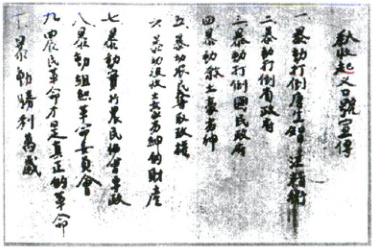 秋收起义口號宣傳
一 暴動打倒唐生智汪精衛
二 暴動打倒省政府
三 暴動打倒國民政府
四 暴動殺土豪劣紳
五 暴動農民奪取政權
六 暴动没收土豪劣紳的財產
七 暴動實行農民協會專政
八 暴動組織革命委員會
九 農民革命才是真正的革命
十 暴動勝利萬歲